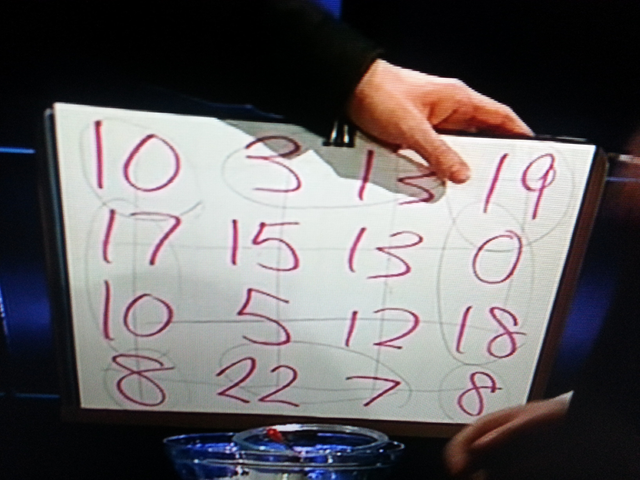 10 3 13 19
17 15 13 0
10 5 12 18
8 22 7 8